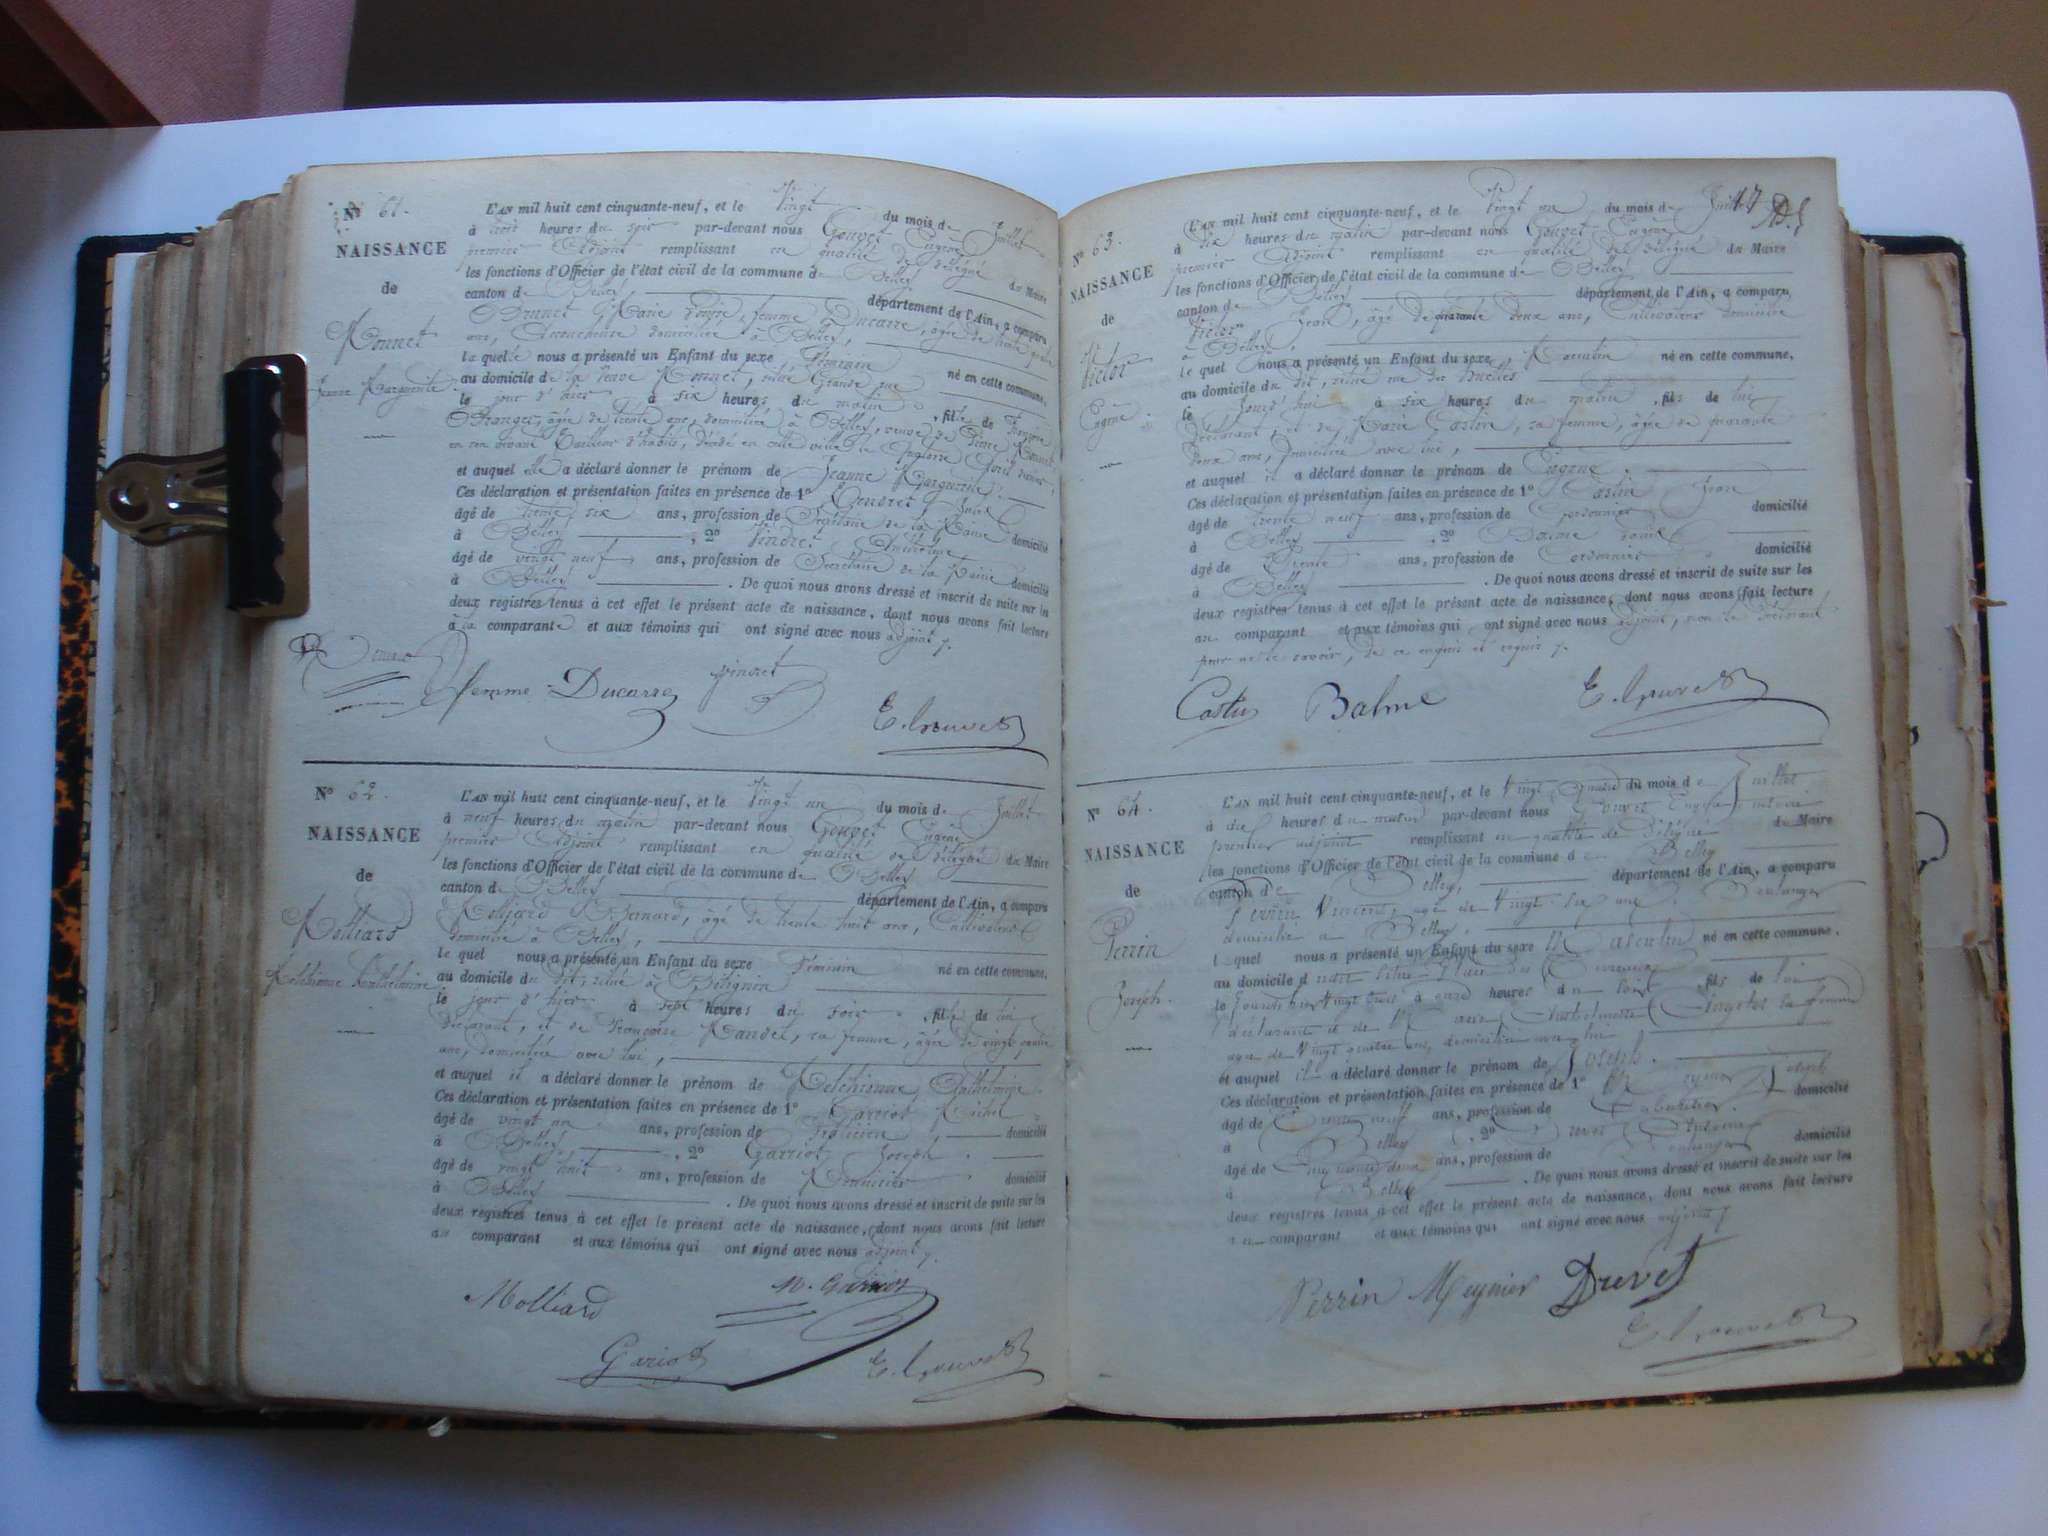 Nº 61.
NAISSANCE
de
Monnet
Jeanne Marguerite
L'AN mil huit cent cinquante-neuf, et le Vingt du mois de Juillet
à trois heures du soir par-devant nous Gouvet Eugène
premier Adjoint remplissant en qualité de délégué du Maire
les fonctions d'Officier de l'état civil de la commune de Belley
canton de Belley département de l'Ain, a comparu
Brunet Marie Louise, femme Ducarre, âgée de trente quatre
ans, Accoucheuse domiciliée à Belley,
la quelle nous a présenté un Enfant du sexe féminin né en cette commune,
au domicile de la veuve Monnet, situé Grande rue
le jour d'hier à six heures du matin, fille de Françoise
âgée de trente ans, domiciliée à Belley, veuve de Pierre Monnet
en son vivant Tailleur d'habits, décédé en cette ville le
et auquel elle a déclaré donner le prénom de Jeanne Marguerite.
Ces déclaration et présentation faites en présence de 1º
âgé de trente six ans, profession de Secrétaire de la Mairie domicilié
à Belley, 2º Vindret Anthelme
âgé de vingt neuf ans, profession de Secrétaire de la Mairie domicilié
à Belley. De quoi nous avons dressé et inscrit de suite sur les
deux registres tenus à cet effet le présent acte de naissance, dont nous avons fait lecture
à la comparante et aux témoins qui ont signé avec nous adjoint
femme Ducarre
E. Gouvet
Nº 62.
NAISSANCE
de
Molliard
Melchionne Anthelmine
L'AN mil huit cent cinquante-neuf, et le Vingt un du mois de Juillet
à neuf heures du matin par-devant nous Gouvet Eugène
premier Adjoint remplissant en qualité de délégué du Maire
les fonctions d'Officier de l'état civil de la commune de Belley
canton de Belley département de l'Ain, a comparu
Molliard Bernard, âgé de trente huit ans, Cultivateur
domicilié à Belley,
le quel nous a présenté un Enfant du sexe féminin né en cette commune,
au domicile du dit, situé à Billignin
le jour d'hier à sept heures du soir, fille de lui
déclarant, et de Françoise Mandet, sa femme, âgée de vingt quatre
ans, domiciliée avec lui,
et auquel il a déclaré donner le prénom de Melchionne Anthelmine.
Ces déclaration et présentation faites en présence de 1º Garriot Michel
âgé de vingt un ans, profession de Praticien, domicilié
à Belley, 2º Garriot Joseph
âgé de vingt huit ans, profession de Menuisier domicilié
à Belley. De quoi nous avons dressé et inscrit de suite sur les
deux registres tenus à cet effet le présent acte de naissance, dont nous avons fait lecture
au comparant et aux témoins qui ont signé avec nous adjoint
Molliard M. Garriot
Gariot E. Gouvet
17
Nº 63.
NAISSANCE
de
Victor
Eugène
L'AN mil huit cent cinquante-neuf, et le Vingt un du mois de Juillet
à dix heures du matin par-devant nous Gouvet Eugène
premier Adjoint remplissant en qualité de délégué du Maire
les fonctions d'Officier de l'état civil de la commune de Belley
canton de Belley département de l'Ain, a comparu
Victor Jean, âgé de quarante deux ans, Cultivateur domicilié
à Belley,
le quel nous a présenté un Enfant du sexe Masculin né en cette commune,
au domicile du dit, situé rue des
le jourd'hui à six heures du matin, fils de lui
déclarant, et de Marie Castin, sa femme, âgée de quarante
deux ans, domiciliée avec lui,
et auquel il a déclaré donner le prénom de Eugène.
Ces déclaration et présentation faites en présence de 1º Castin Jean
âgé de trente neuf ans, profession de Cordonnier domicilié
à Belley, 2º Balme
âgé de trente ans, profession de Cordonnier domicilié
à Belley. De quoi nous avons dressé et inscrit de suite sur les
deux registres tenus à cet effet le présent acte de naissance, dont nous avons fait lecture
au comparant et aux témoins qui ont signé avec nous adjoint, non le déclarant
pour ne le savoir, de ce enquis et requis
Castin Balme E. Gouvet
Nº 64.
NAISSANCE
de
Perrin
Joseph.
L'AN mil huit cent cinquante-neuf, et le Vingt quatre du mois de Juillet
à dix heures du matin par-devant nous Gouvet Eugène
premier adjoint remplissant en qualité de Délégué du Maire
les fonctions d'Officier de l'état civil de la commune de Belley
canton de Belley, département de l'Ain, a comparu
Perrin Vincent, âgé de Vingt six ans, Boulanger
domicilié à Belley,
le quel nous a présenté un Enfant du sexe Masculin né en cette commune.
au domicile du dit situé Place des Terreaux
le jour d'hier Vingt trois à onze heures du soir, fils de lui
déclarant et de Marie sa femme
âgée de Vingt quatre ans, domiciliée avec lui
et auquel il a déclaré donner le prénom de Joseph.
Ces déclaration et présentation faites en présence de 1º Meynier Joseph
âgé de Trente neuf ans, profession de Cabaretier domicilié
à Belley, 2º Druvet Antoine
âgé de Cinquante deux ans, profession de Boulanger domicilié
à Belley. De quoi nous avons dressé et inscrit de suite sur les
deux registres tenus à cet effet le présent acte de naissance, dont nous avons fait lecture
au comparant et aux témoins qui ont signé avec nous adjoint
Perrin Meynier Druvet
E. Gouvet